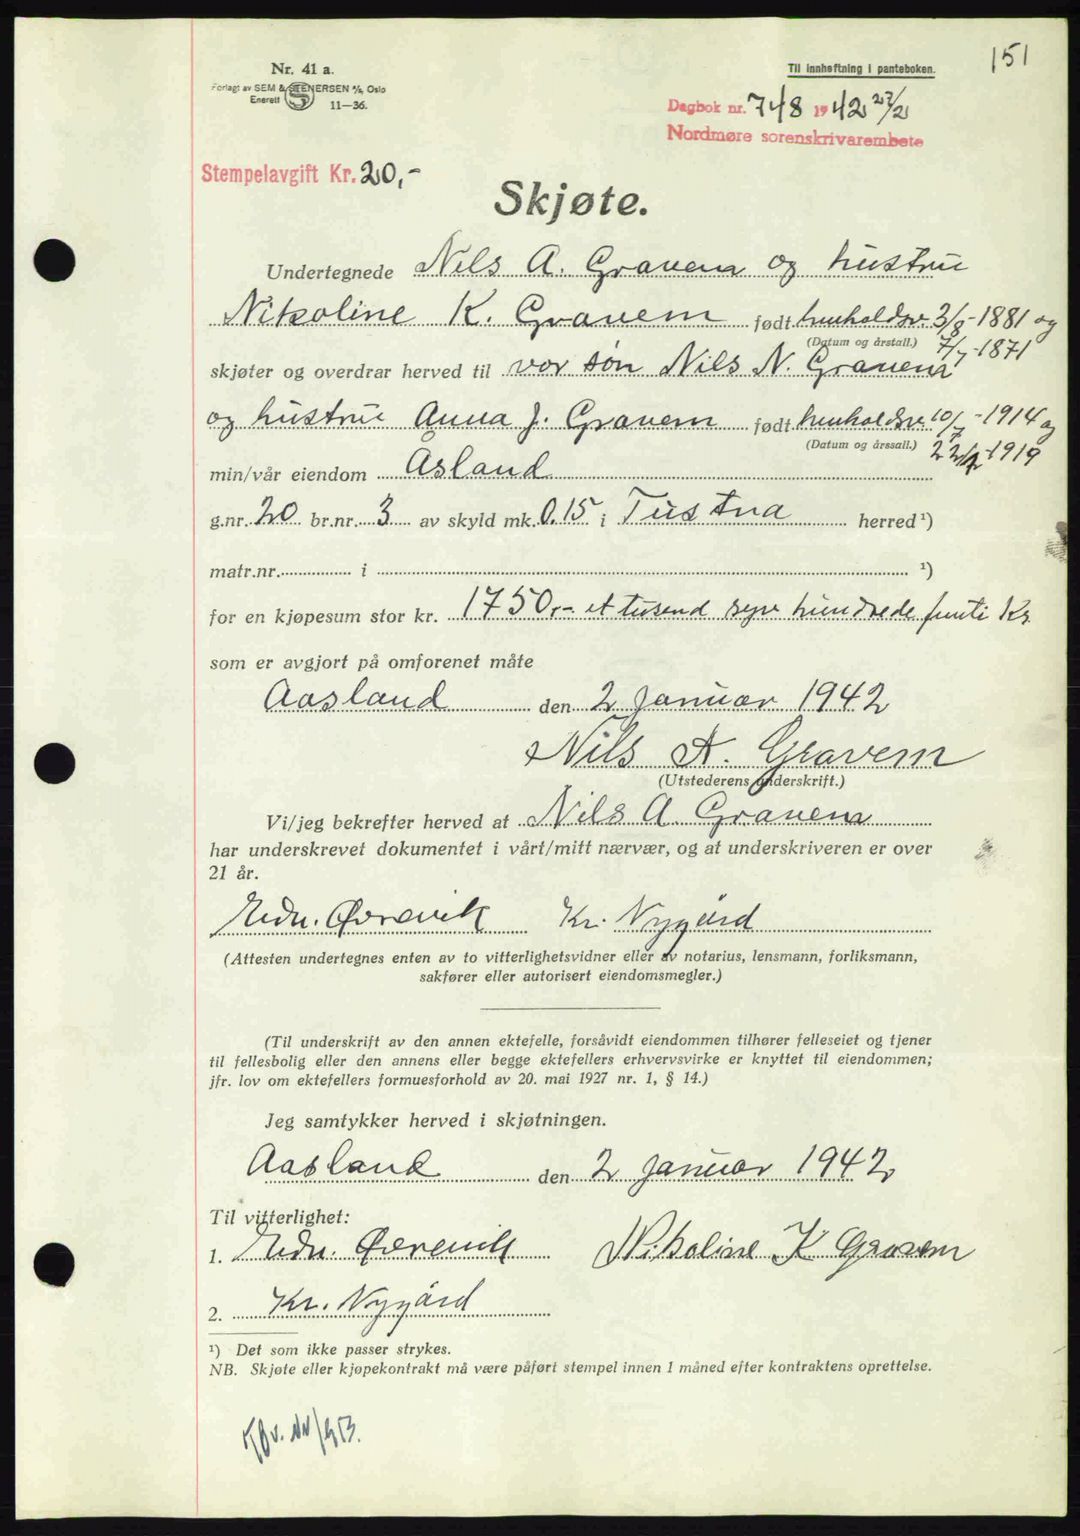 151
Nr. 41 a.
Forlagt av SEM & STENERSEN A/S, Oslo
Enerett S 11—36.
Til innheftning i panteboken.
Dagbok nr. 748 1942 27/2
Nordmøre sorenskrivarembete
Stempelavgift Kr. 20,-
Skjøte.
Undertegnede Nils A. Gravem og hustru
Nikoline K. Gravem født henholdsv. 3/8-1881 og
(Datum og årstall.) 7/7-1871
skjøter og overdrar herved til vor søn Nils N. Gravem
og hustru Anna J. Gravem født henholdsv. 10/7-1914 og
(Datum og årssall.) -1919
min/vår eiendom Åsland
g.nr. 20 br.nr. 3 av skyld mk. 0.15 i Tustna herred ¹)
matr.nr. i ¹)
for en kjøpesum stor kr. 1750,- et tusend syv hundrede femti Kr.
som er avgjort på omforenet måte
Aasland den 2 Januar 1942
Nils A. Gravem
(Utstederens underskrift.)
Vi/jeg bekrefter herved at Nils A. Gravem
har underskrevet dokumentet i vårt/mitt nærvær, og at underskriveren er over
21 år.
Edv. Ørevik Kr. Nygård
(Attesten undertegnes enten av to vitterlighetsvidner eller av notarius, lensmann, forliksmann,
sakfører eller autorisert eiendomsmegler.)
(Til underskrift av den annen ektefelle, forsåvidt eiendommen tilhører felleseiet og tjener
til fellesbolig eller den annens eller begge ektefellers erhvervsvirke er knyttet til eiendommen;
jfr. lov om ektefellers formuesforhold av 20. mai 1927 nr. 1, § 14.)
Jeg samtykker herved i skjøtningen.
Aasland den 2 Januar 1942
Til vitterlighet:
1. Edv. Ørevik Nikoline K Gravem
2. Kr. Nygård
¹) Det som ikke passer strykes.
NB. Skjøte eller kjøpekontrakt må være påført stempel innen 1 måned efter kontraktens oprettelse.